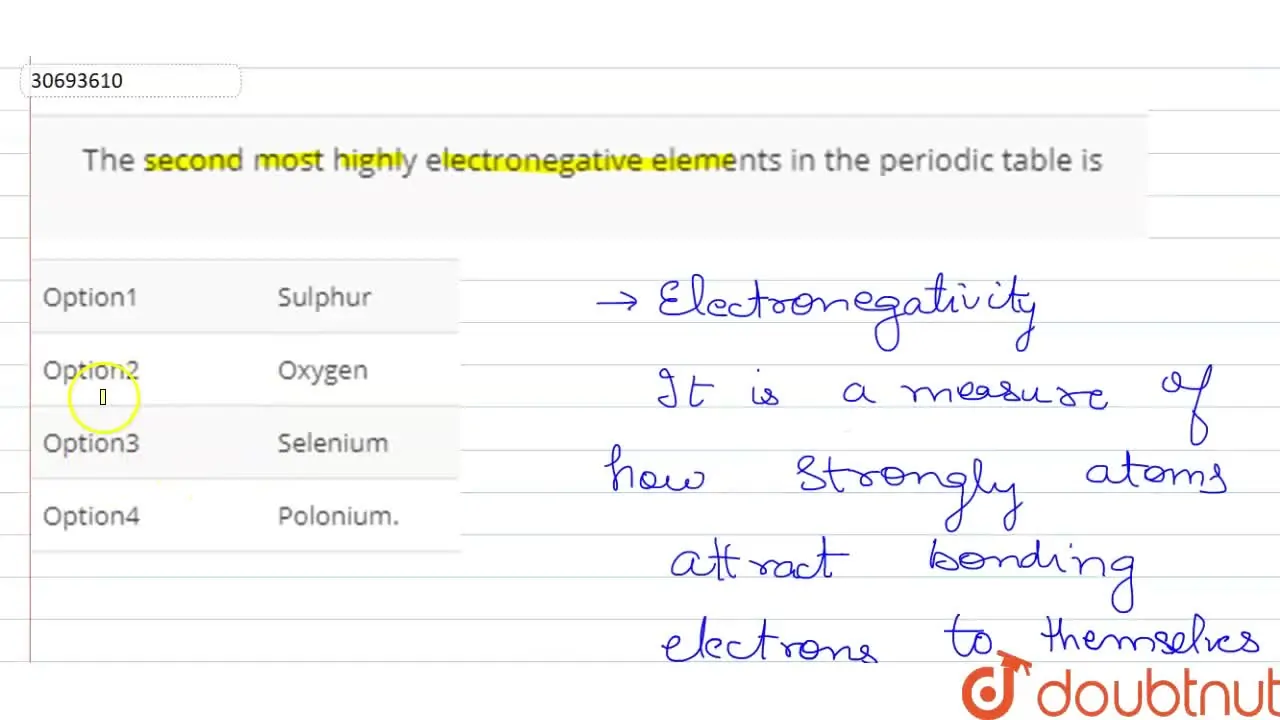 30693610
The second most highly electronegative elements in the periodic table is
Option1 Sulphur
Option2 Oxygen
Option3 Selenium
Option4 Polonium.
→ Electronegativity
It is a measure of
how strongly atoms
attract bonding
electrons to themselves
doubtnut